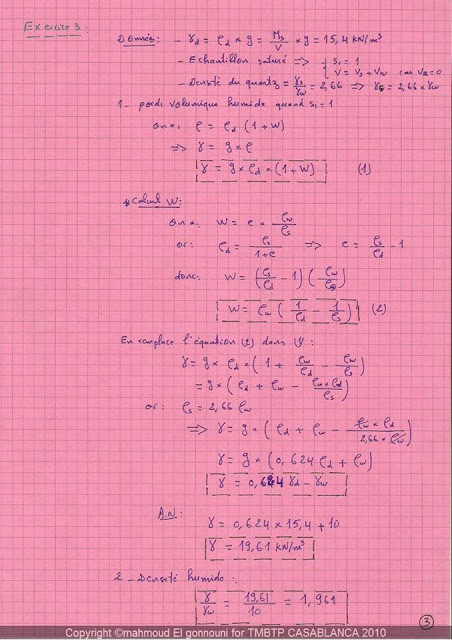 Exercice 3:
Données: - γd = ρd × g = Ms/V × g = 15,4 kN/m³
- Echantillon saturé => { Si = 1
V = Vs + Vw car Va = 0
- Densité du quartz = γs/γw = 2,66 => γs = 2,66 × γw
1 - poids volumique humide quand Si = 1
on a: ρ = ρd (1+W)
=> γ = g × ρ
γ = g × ρd × (1+W) (1)
* Calcul W:
on a: W = e × ρw/ρs
or: ρd = ρs/(1+e) => e = ρs/ρd - 1
donc: W = (ρs/ρd - 1) (ρw/ρs)
W = ρw (1/ρd - 1/ρs) (2)
En remplace l'équation (2) dans (1):
γ = g × ρd × (1 + ρw/ρd - ρw/ρs)
= g × (ρd + ρw - ρw×ρd/ρs)
or: ρs = 2,66 ρw
=> γ = g × (ρd + ρw - ρw × ρd/2,66 × ρw)
γ = g × (0,624 ρd + ρw)
γ = 0,624 γd - γw
A.N:
γ = 0,624 × 15,4 + 10
γ = 19,61 kN/m³
2 - Densité humide:
γ/γw = 19,61/10 = 1,961
3
Copyright ©mahmoud El gonnouni for TMBTP CASABLANCA 2010